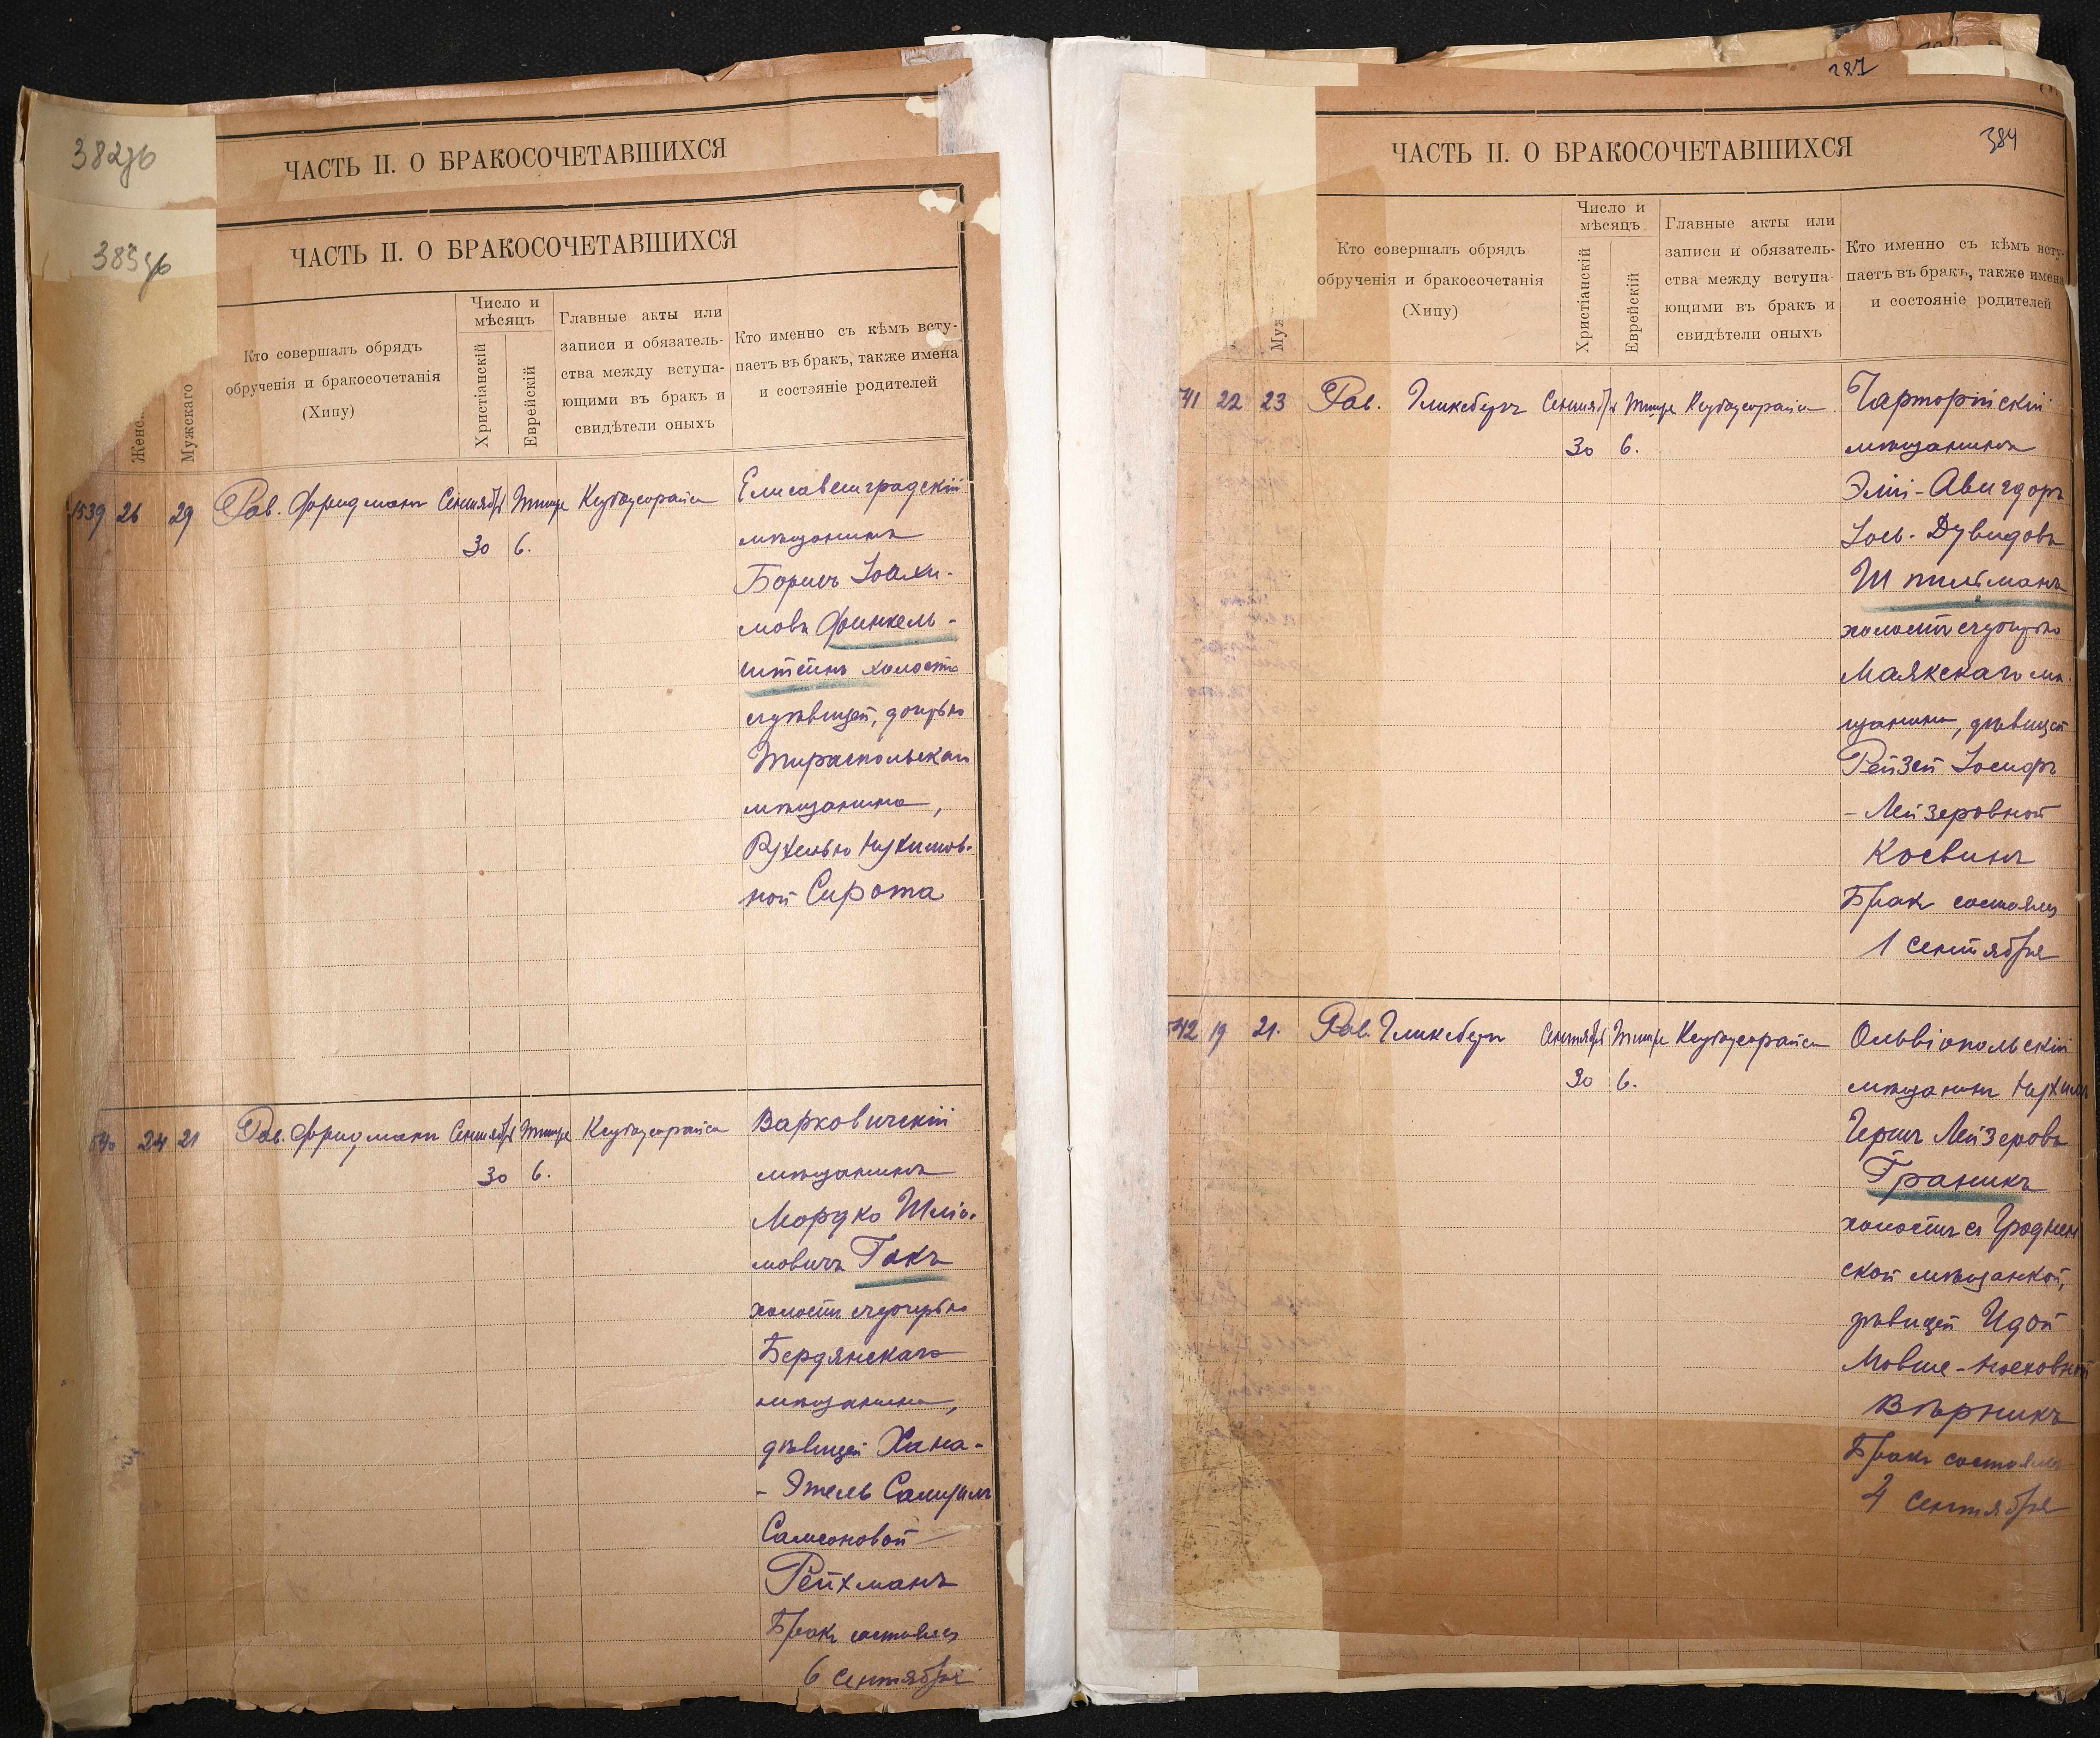 382об
ЧАСТЬ II. О БРАКОСОЧЕТАВШИХСЯ
ЧАСТЬ II. О БРАКОСОЧЕТАВШИХСЯ
Женс
Мужескаго
Кто совершалъ обрядъ
обрученія и бракосочетанія
(Хипу)
Число и
мѣсяцъ
Христіанскій
Еврейскій
Главные акты или
записи и обязатель-
ства между вступа-
ющими въ бракъ и
свидѣтели оныхъ
Кто именно съ кѣмъ всту-
паетъ въ бракъ, также имена
и состояніе родителей
1539 26 29 Рав. Фридманъ Сентябрь Тишре
30 6.
Елисаветградскій
мѣщанинъ
Борисъ Іоахи-
мовъ Финкель-
штейнъ холостъ
съ дочерью
Тираспольскаго
мѣщанина,
Рухелью Нухимов-
ной Сирота
540 24 21 Рав. Фридманъ Сентябрь Тишре
30 6.
Варковичскій
мѣщанинъ
Мордко Шліо-
мовичъ Гакъ
холостъ съ дочерью
Бердянскаго
мѣщанина,
дѣвицей Хана-
- Этель
Самсоновой
Рейхманъ
Бракъ состоялся
6 Сентября
387
384
ЧАСТЬ II. О БРАКОСОЧЕТАВШИХСЯ
Муж
Кто совершалъ обрядъ
обрученія и бракосочетанія
(Хипу)
Число и
мѣсяцъ
Христіанскій
Еврейскій
Главные акты или
записи и обязатель-
ства между вступа-
ющими въ бракъ и
свидѣтели оныхъ
Кто именно съ кѣмъ всту-
паетъ въ бракъ, также имена
и состояніе родителей
541 22 23 Рав. Гликсбергъ Сентябрь Тишре
30 6.
Чарторійскій
мѣщанинъ
Элій-Авигдоръ
Іось-Дувидовъ
Шпильманъ
холостъ съ дочерью
Маякскаго мѣ-
щанина, дѣвицей
Рейзей Іосифъ
- Лейзеровной
Косвинъ
Бракъ состоялся
1 Сентября
542 19 21. Рав. Гликсбергъ Сентябрь Тишре
30 6.
Ольвіопольскій
мѣщанинъ Нухимъ
Гершъ Лейзеровъ
Граникъ
холостъ съ Гроднен
ской мѣщанкой,
дѣвицей Идой
Мовше-Носеховной
Вѣрникъ
Бракъ состоялся
4 Сентября